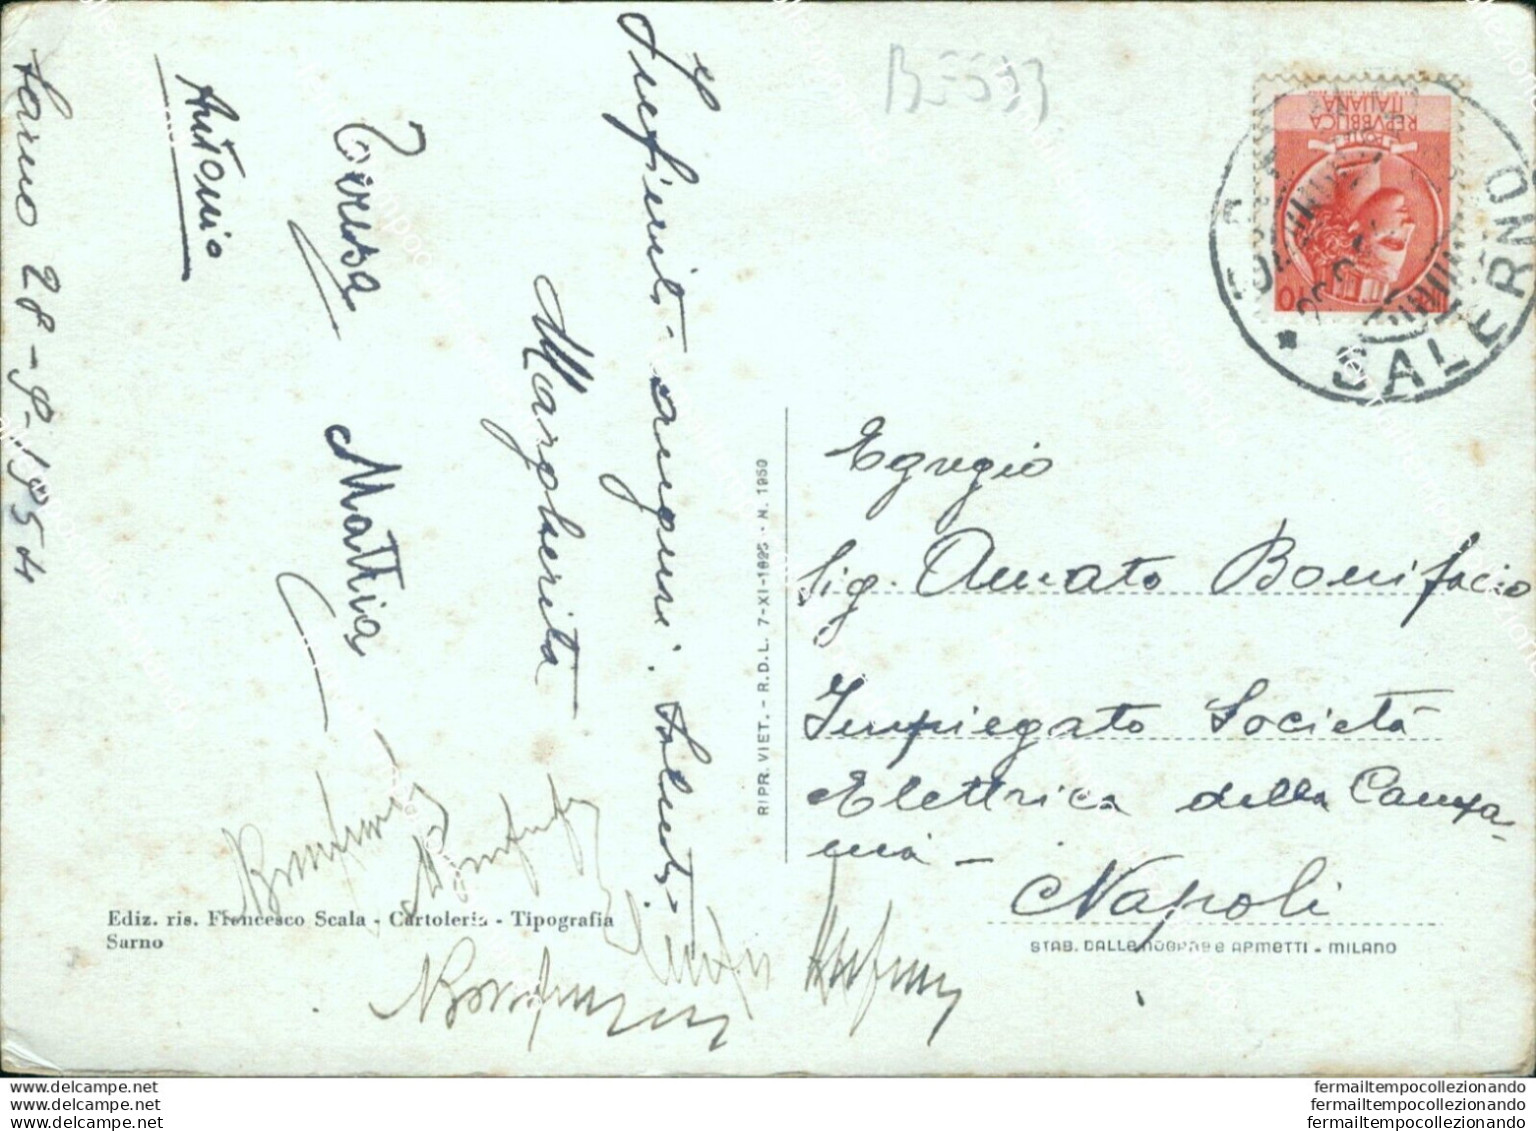 Sarno 28-9-1954
Infiniti auguri. Saluti.
Margherita
Teresa Mattia
Antonio
BE593
REPVBBLICA
ITALIANA
10
SALERNO
Egregio
Sig. Amato Bonifacio
Impiegato Società
Elettrica della Campa-
nia -
Napoli
RIPR. VIET. - R.D.L. 7-XI-1925 - N. 1950
Ediz. ris. Francesco Scala - Cartoleria - Tipografia
Sarno
STAB. DALLE NOGARE e ARMETTI - MILANO
www.delcampe.net
www.delcampe.net
www.delcampe.net
fermailtempocollezionando
fermailtempocollezionando
fermailtempocollezionando